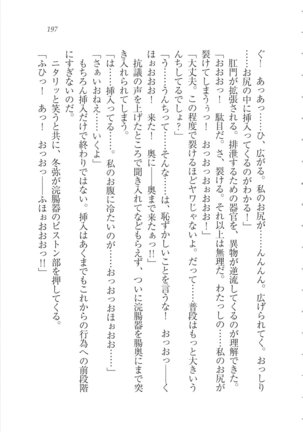 197
ぐ！　あっあっ……ひ、広がる。私のお尻が……んんんん。広げられてく。おっしり
……お尻の中に挿入ってくるのがわかる！」
　肛門が拡張される。排泄するための器官を、異物が逆流してくるのが理解できた。
「おおおっ！　駄目だ。さ、裂ける。それ以上は無理だ。わたしの……私のお尻が
裂けてしまうっ！　おっおっおぉおおお！」
「大丈夫。この程度で裂けるほどヤワじゃないよ。だって……普段はもっと大きいう
んちしてるでしょ？」
「う……うんちって……そ、そんな……は、恥ずかしいことを言うな！　おっおっ――く
ほぉおおおっ！　来た！　奥に――奥まで来たぁっ!!」
　抗議の声を上げたところで聞き入れてなどもらえず、ついに浣腸器を腸奥にまで突
き入れられてしまう。
「は……挿入ってる……。私のお腹に冷たいのが……おっおっほぉおおお……」
「さぁ、いくよ」
　もちろん挿入だけで終わりではない。挿入はあくまでもこれからの行為への前段階
にすぎないのだ。
　ニタリッと笑うと共に、冬弥が浣腸器のピストン部を押してくる。
「ふひっ！　あっ！　おっおっ――ふほぉおおおっ!!」